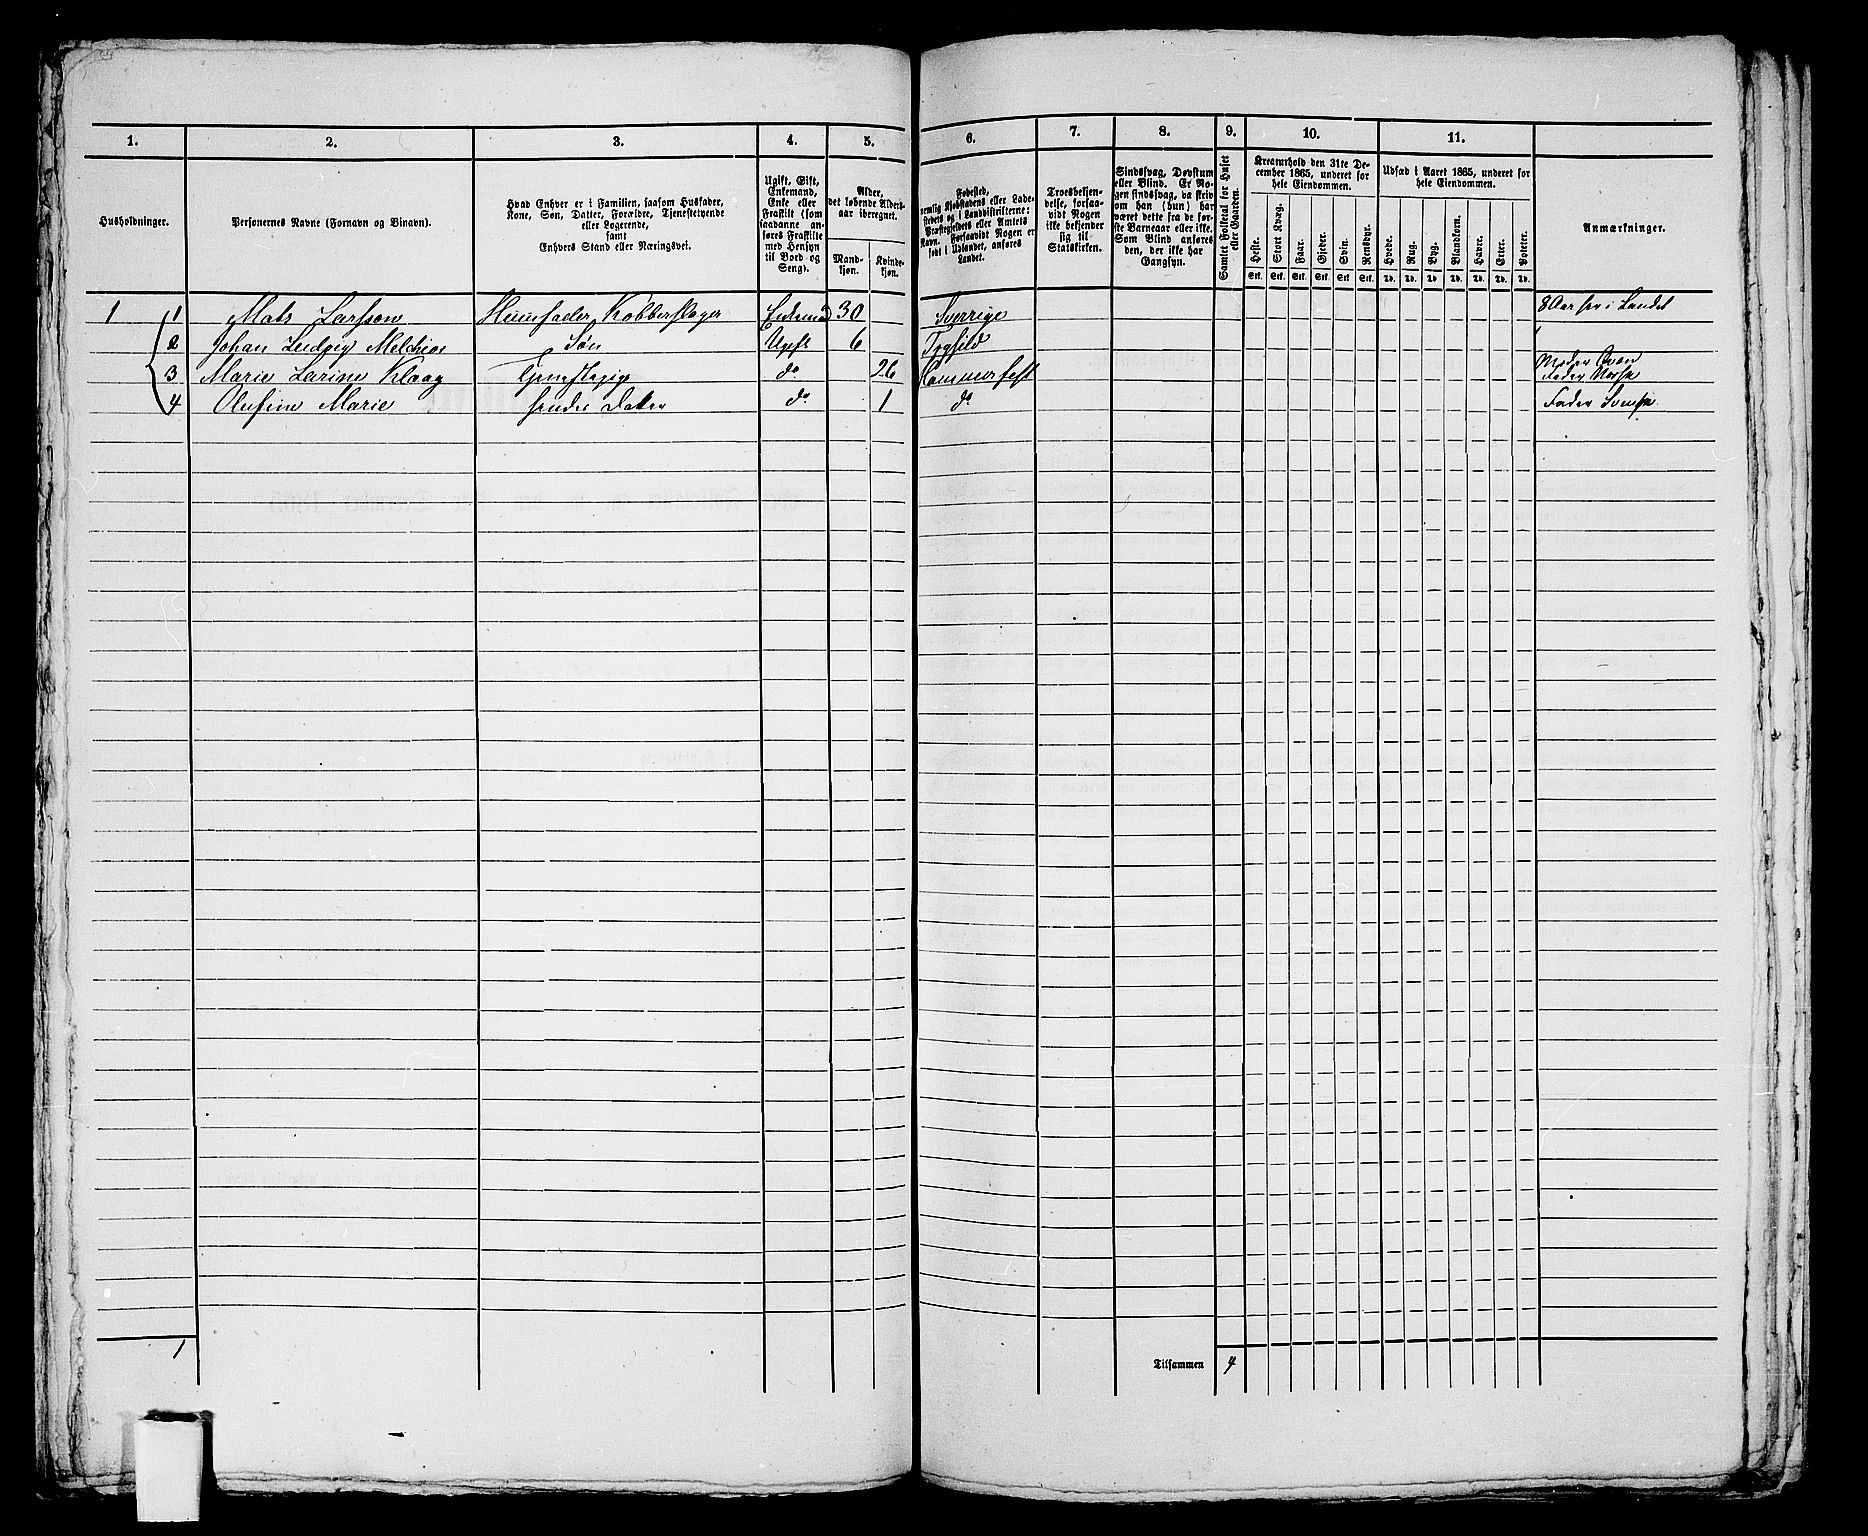 1. 2. 3. 4. 5. 6. 7. 8. 9. 10. 11.
Husholdninger.
Personernes Navne (Fornavn og Binavn).
Hvad Enhver er i Familien, saasom Husfader,
Kone, Søn, Datter, Forældre, Tjenestetyende
eller Logerende,
samt
Enhvers Stand eller Næringsvei.
Ugift, Gift,
Enkemand,
Enke eller
Fraskilt (som
saadanne an-
føres Fraskilte
med Hensyn
til Bord og
Seng).
Alder,
det løbende Alders-
aar iberegnet.
Mand-
kjøn.
Kvinde-
kjøn.
Fødested,
nemlig Kjøbstadens eller Lade-
stedets og i Landdistrikterne:
Præstegjeldets eller Amtets
Navn. Forsaavidt Nogen er
født i Udlandet, anføres
Landet.
Troesbekjen-
delse, forsaa-
vidt Nogen
ikke bekjender
sig til
Statskirken.
Sindssvag, Døvstum
eller Blind. Er No-
gen sindssvag, da skriv
om han (hun) har
været dette fra de før-
ste Barneaar eller ikke.
Som Blind anføres
den, der ikke har
Gangsyn.
Samlet Folketal for Huset
eller Gaarden.
Kreaturhold den 31te De-
cember 1865, underet for
hele Eiendommen.
Heste. Stort Kvæg. Faar. Gjeder. Svin. Rensdyr.
Stk. Stk. Stk. Stk. Stk. Stk.
Udsæd i Aaret 1865, underet for
hele Eiendommen.
Hvede. Rug. Byg. Blandkorn. Havre. Erter. Poteter.
Td. Td. Td. Td. Td. Td. Td.
Anmærkninger.
1 1 Mats Larsson Huusfader Kobberslager Enkemand 30 Sverrige 8 Aar her i Landet
2 Johan Ludvig Melchior Søn Ugift 6
3 Marie Larine Klaag Tjenestepige do 26 Hammerfest Moder Qvæn
Fader Norsk
4 Olufine Marie hendes Datter do 1 do Fader Svensk
1
Tilsammen 4